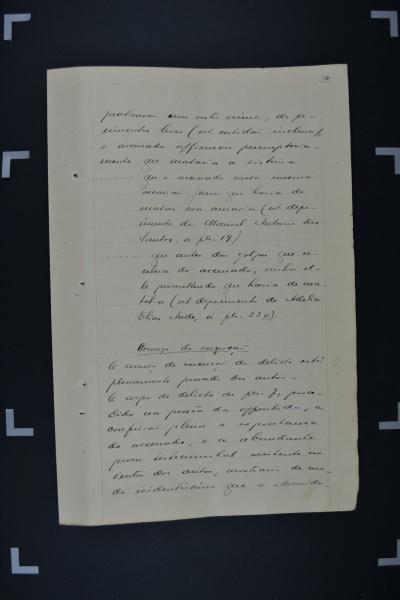 praticara um outro crime, de fe-
rimentos leves (ut certidão inclusa),
o accusado affirmou peremptoria-
mente que mataria a victima.
......... que o accusado nessa mesma
occasião jurou que havia de
matar sua amasia (ut depoi-
mento de Manoel Antonio dos
Santos, a fls. 19)
......... que antes dos golpes que
do accusado, vinha el-
le promettendo que havia de ma-
tal-a (ut depoimento de Adelia
Elias á fls. 22v).
Começo de execução
O começo de execução do delicto está
plenamente provado dos autos.
O corpo de delicto de fls. 7, proce-
dido na pessôa da offendida, a
confissão plena e espontanea
do accusado, e a abundante
prova testemunhal existente no
ventre dos autos, auxiliam de mo-
do evidentissimo que a